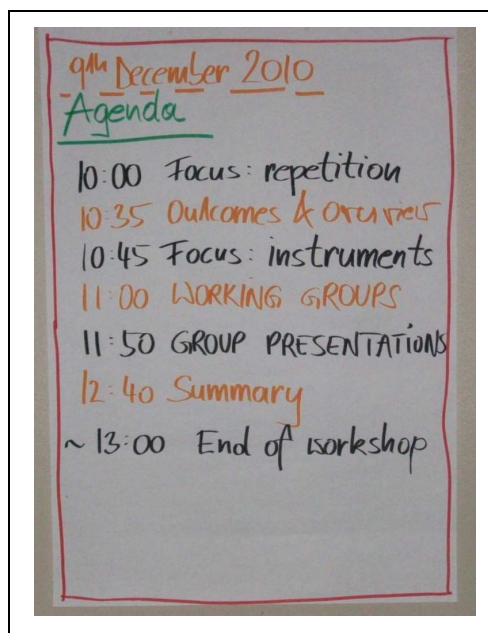 9th December 2010
Agenda
10:00 Focus: repetition
10:35 Outcomes & Overview
10:45 Focus: instruments
11:00 WORKING GROUPS
11:50 GROUP PRESENTATIONS
12:40 Summary
~ 13:00 End of workshop